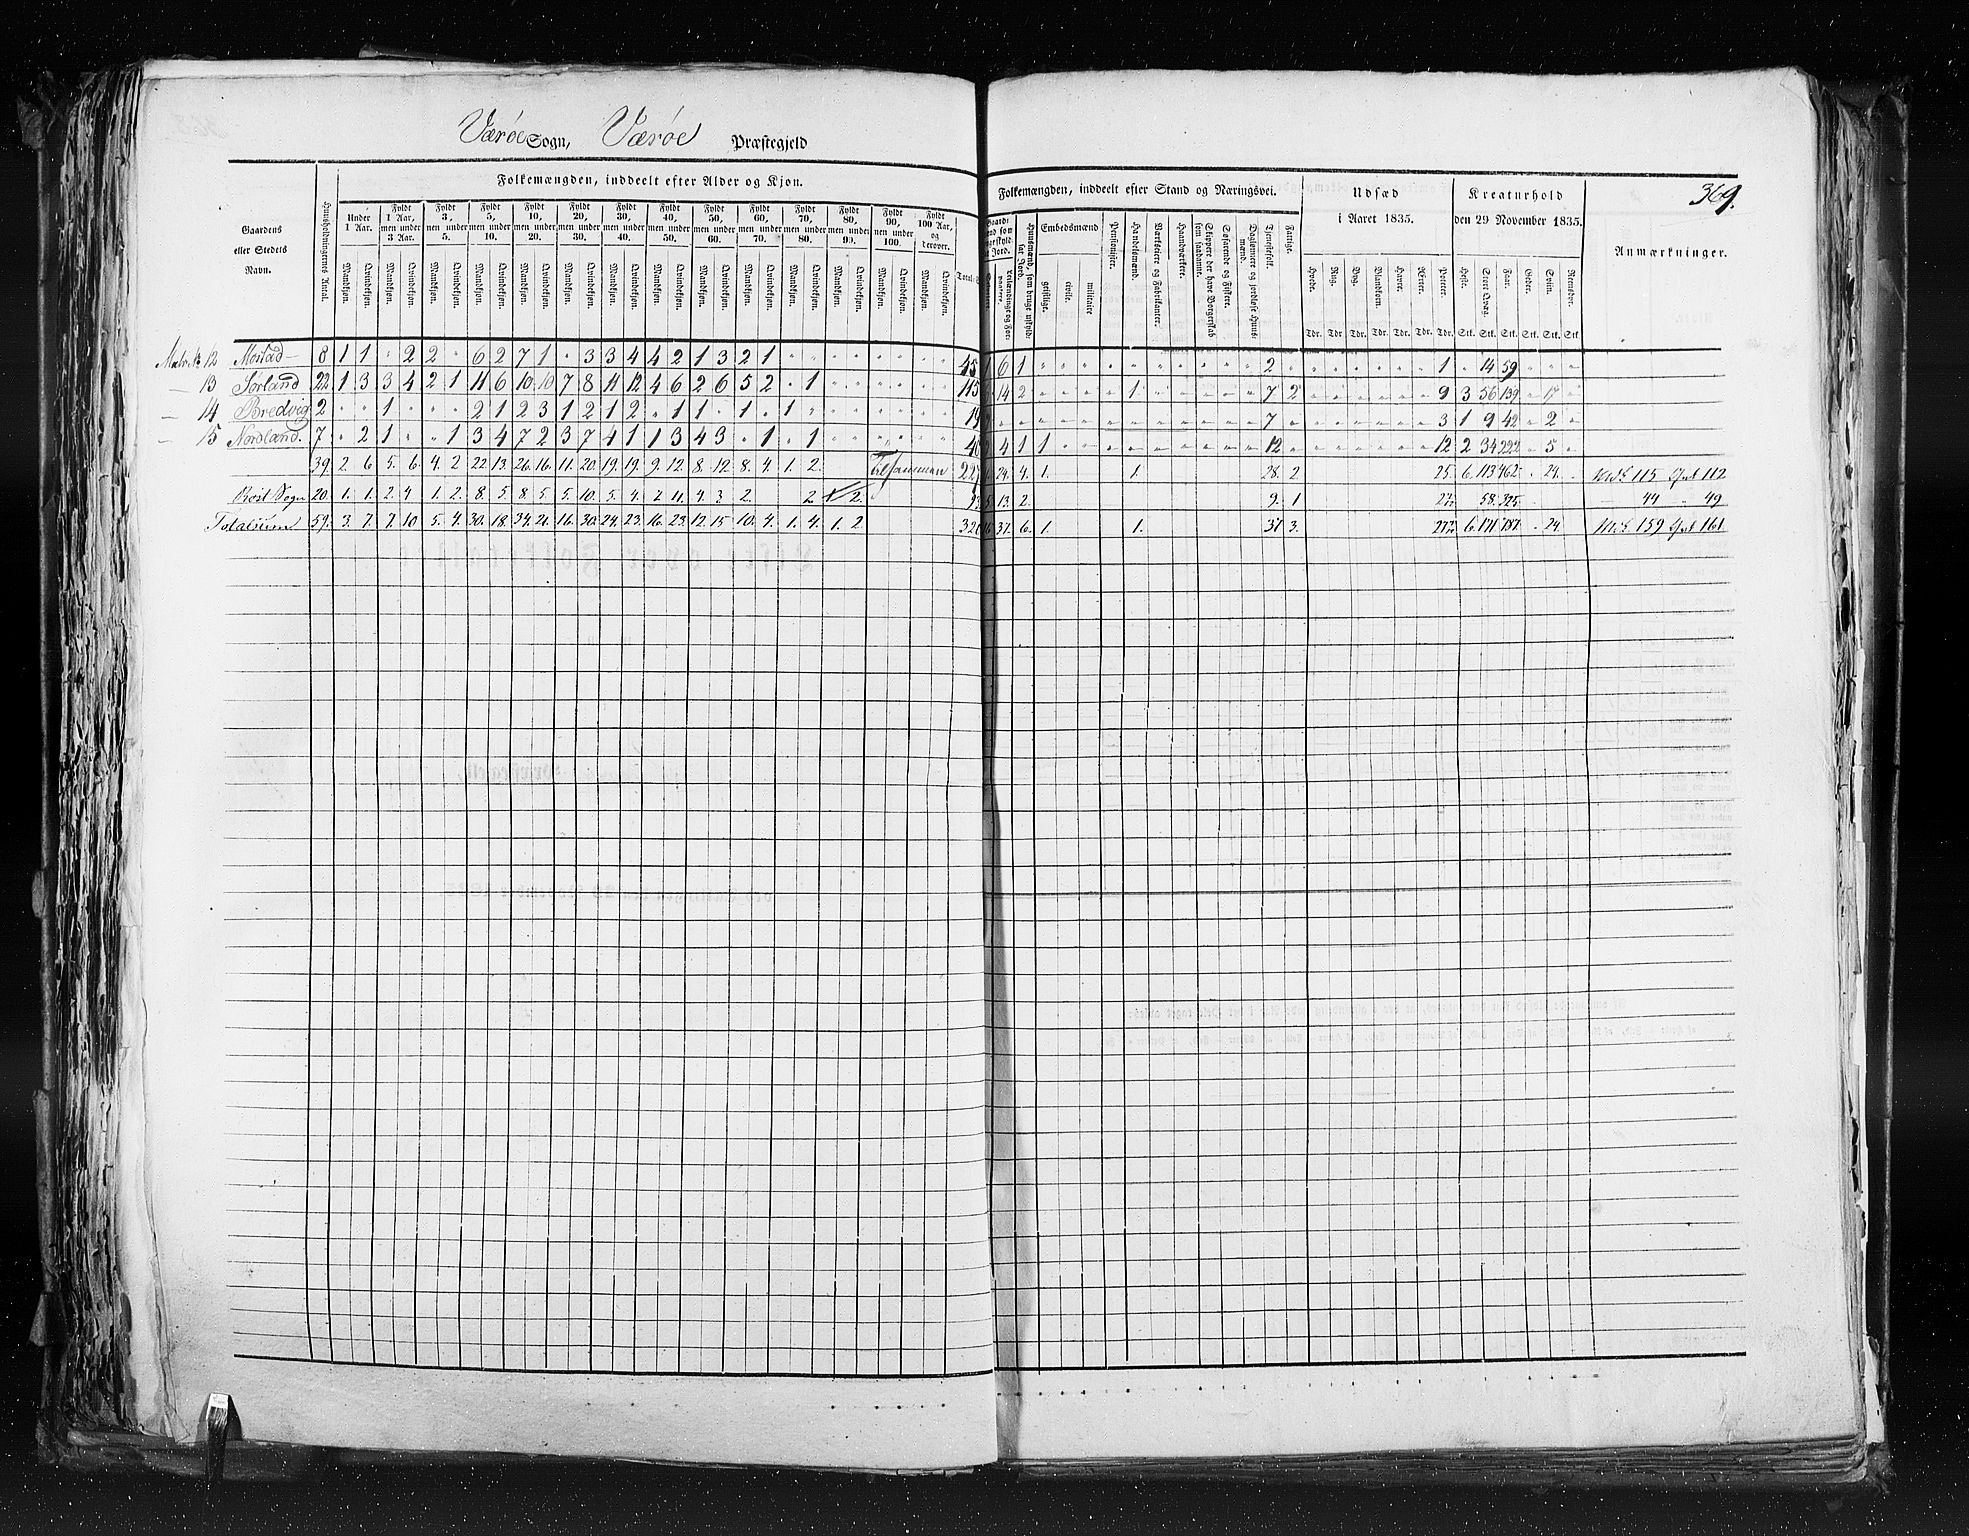 Værøe Sogn, Værøe Præstegjeld
369.
Gaardens eller Stedets Navn.
Huusholdningernes Antal.
Folkemængden, inddeelt efter Alder og Kjøn.
Under 1 Aar.
Fyldt 1 Aar, men under 3 Aar.
Fyldt 3, men under 5.
Fyldt 5, men under 10.
Fyldt 10, men under 20.
Fyldt 20, men under 30.
Fyldt 30, men under 40.
Fyldt 40, men under 50.
Fyldt 50, men under 60.
Fyldt 60, men under 70.
Fyldt 70, men under 80.
Fyldt 80, men under 90.
Fyldt 90, men under 100.
Fyldt 100 Aar, og derover.
Mandkjøn. Qvindekjøn.
Total
Folkemængden, inddeelt efter Stand og Næringsvei.
Huusmænd, som bruge uskyldsat Jord.
Embedsmænd
geistlige. civile. militaire
Pensionister.
Handelsmænd.
Værkseiere og Fabrikanter.
Haandværkere.
Skippere der have Borgerskab som saadanne.
Søfarende og Fiskere.
Daglønnere og jordløse Huusmænd.
Tjenestefolk.
Fattige.
Udsæd i Aaret 1835.
Hvede. Rug. Byg. Blandkorn. Havre. Ærter. Poteter.
Tdr. Tdr Tdr. Tdr. Tdr. Tdr. Tdr.
Kreaturhold den 29 November 1835.
Heste. Stort Qvæg. Faar. Geder. Sviin. Reensdyr.
Stk. Stk. Stk. Stk. Stk. Stk
Anmærkninger.
Matr. № 12 Mostad 8 1 1 " 2 2 " 6 2 7 1 " 3 3 4 4 2 1 3 2 1 45 6 1 2 1 " 14 59
— 13 Sørland 22 1 3 3 4 2 1 11 6 10 10 7 8 11 12 4 6 2 6 5 2 " 1 115 14 2 1 7 2 9 3 56 139 " 17
— 14 Bredvig 2 " " 1 " " " 2 1 2 3 1 2 1 2 " 1 1 " 1 " 1 19 7 3 1 9 42 " 2
— 15 Nordland. 7 " 2 1 " " 1 3 4 7 2 3 7 4 1 1 3 4 3 " 1 " 1 48 4 1 1 12 12 2 34 222 " 5
39. 2. 6. 5. 6. 4. 2. 22. 13. 26. 16. 11. 20. 19. 19. 9. 12. 8. 12. 8. 4. 1. 2. tilsammen 227 24. 4. 1. 1. 28. 2 25. 6. 113 462. " 24. Mk. 115 Qvk 112
Röst Sogn 20. 1. 1. 2. 4 1. 2. 8. 5. 8. 5. 5. 10. 5. 4. 7. 11. 4. 3. 2. 2 2. 93 13. 2. 9. 1 58. 325. 44 " 49
Totalsum 59. 3. 7. 7. 10 5. 4. 30. 18. 34. 21. 16. 30. 24. 23. 16. 23. 12. 15. 10. 4. 1. 4. 1. 2. 320 37. 6. 1. 1. 37 3. 6. 171. 787. " 24. Mk. 159 Qvk 161